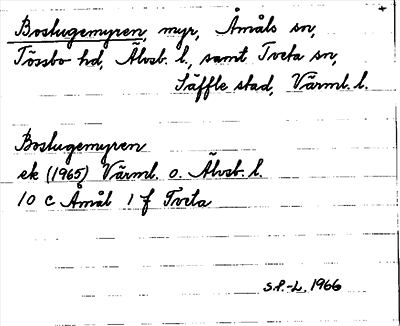 Boslugemyren, myr, Åmåls sn,
Tössbo hd, Älvsb. l., samt Tveta sn,
Säffle stad, Värml. l.
Boslugemyren
ek (1965) Värml. o. Älvsb. l.
10 c Åmål 1 f Tveta
S.P.-L. 1966